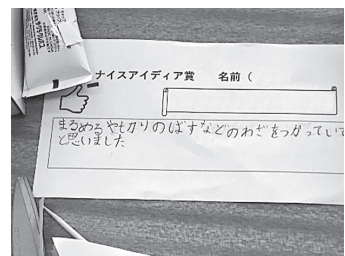 ナイスアイディア賞 名前（
まるめるやもかりのばすなどのわざをつかっていて
と思いました